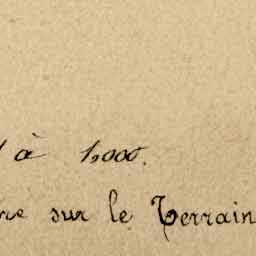 à 1,000.
sur le Terrain